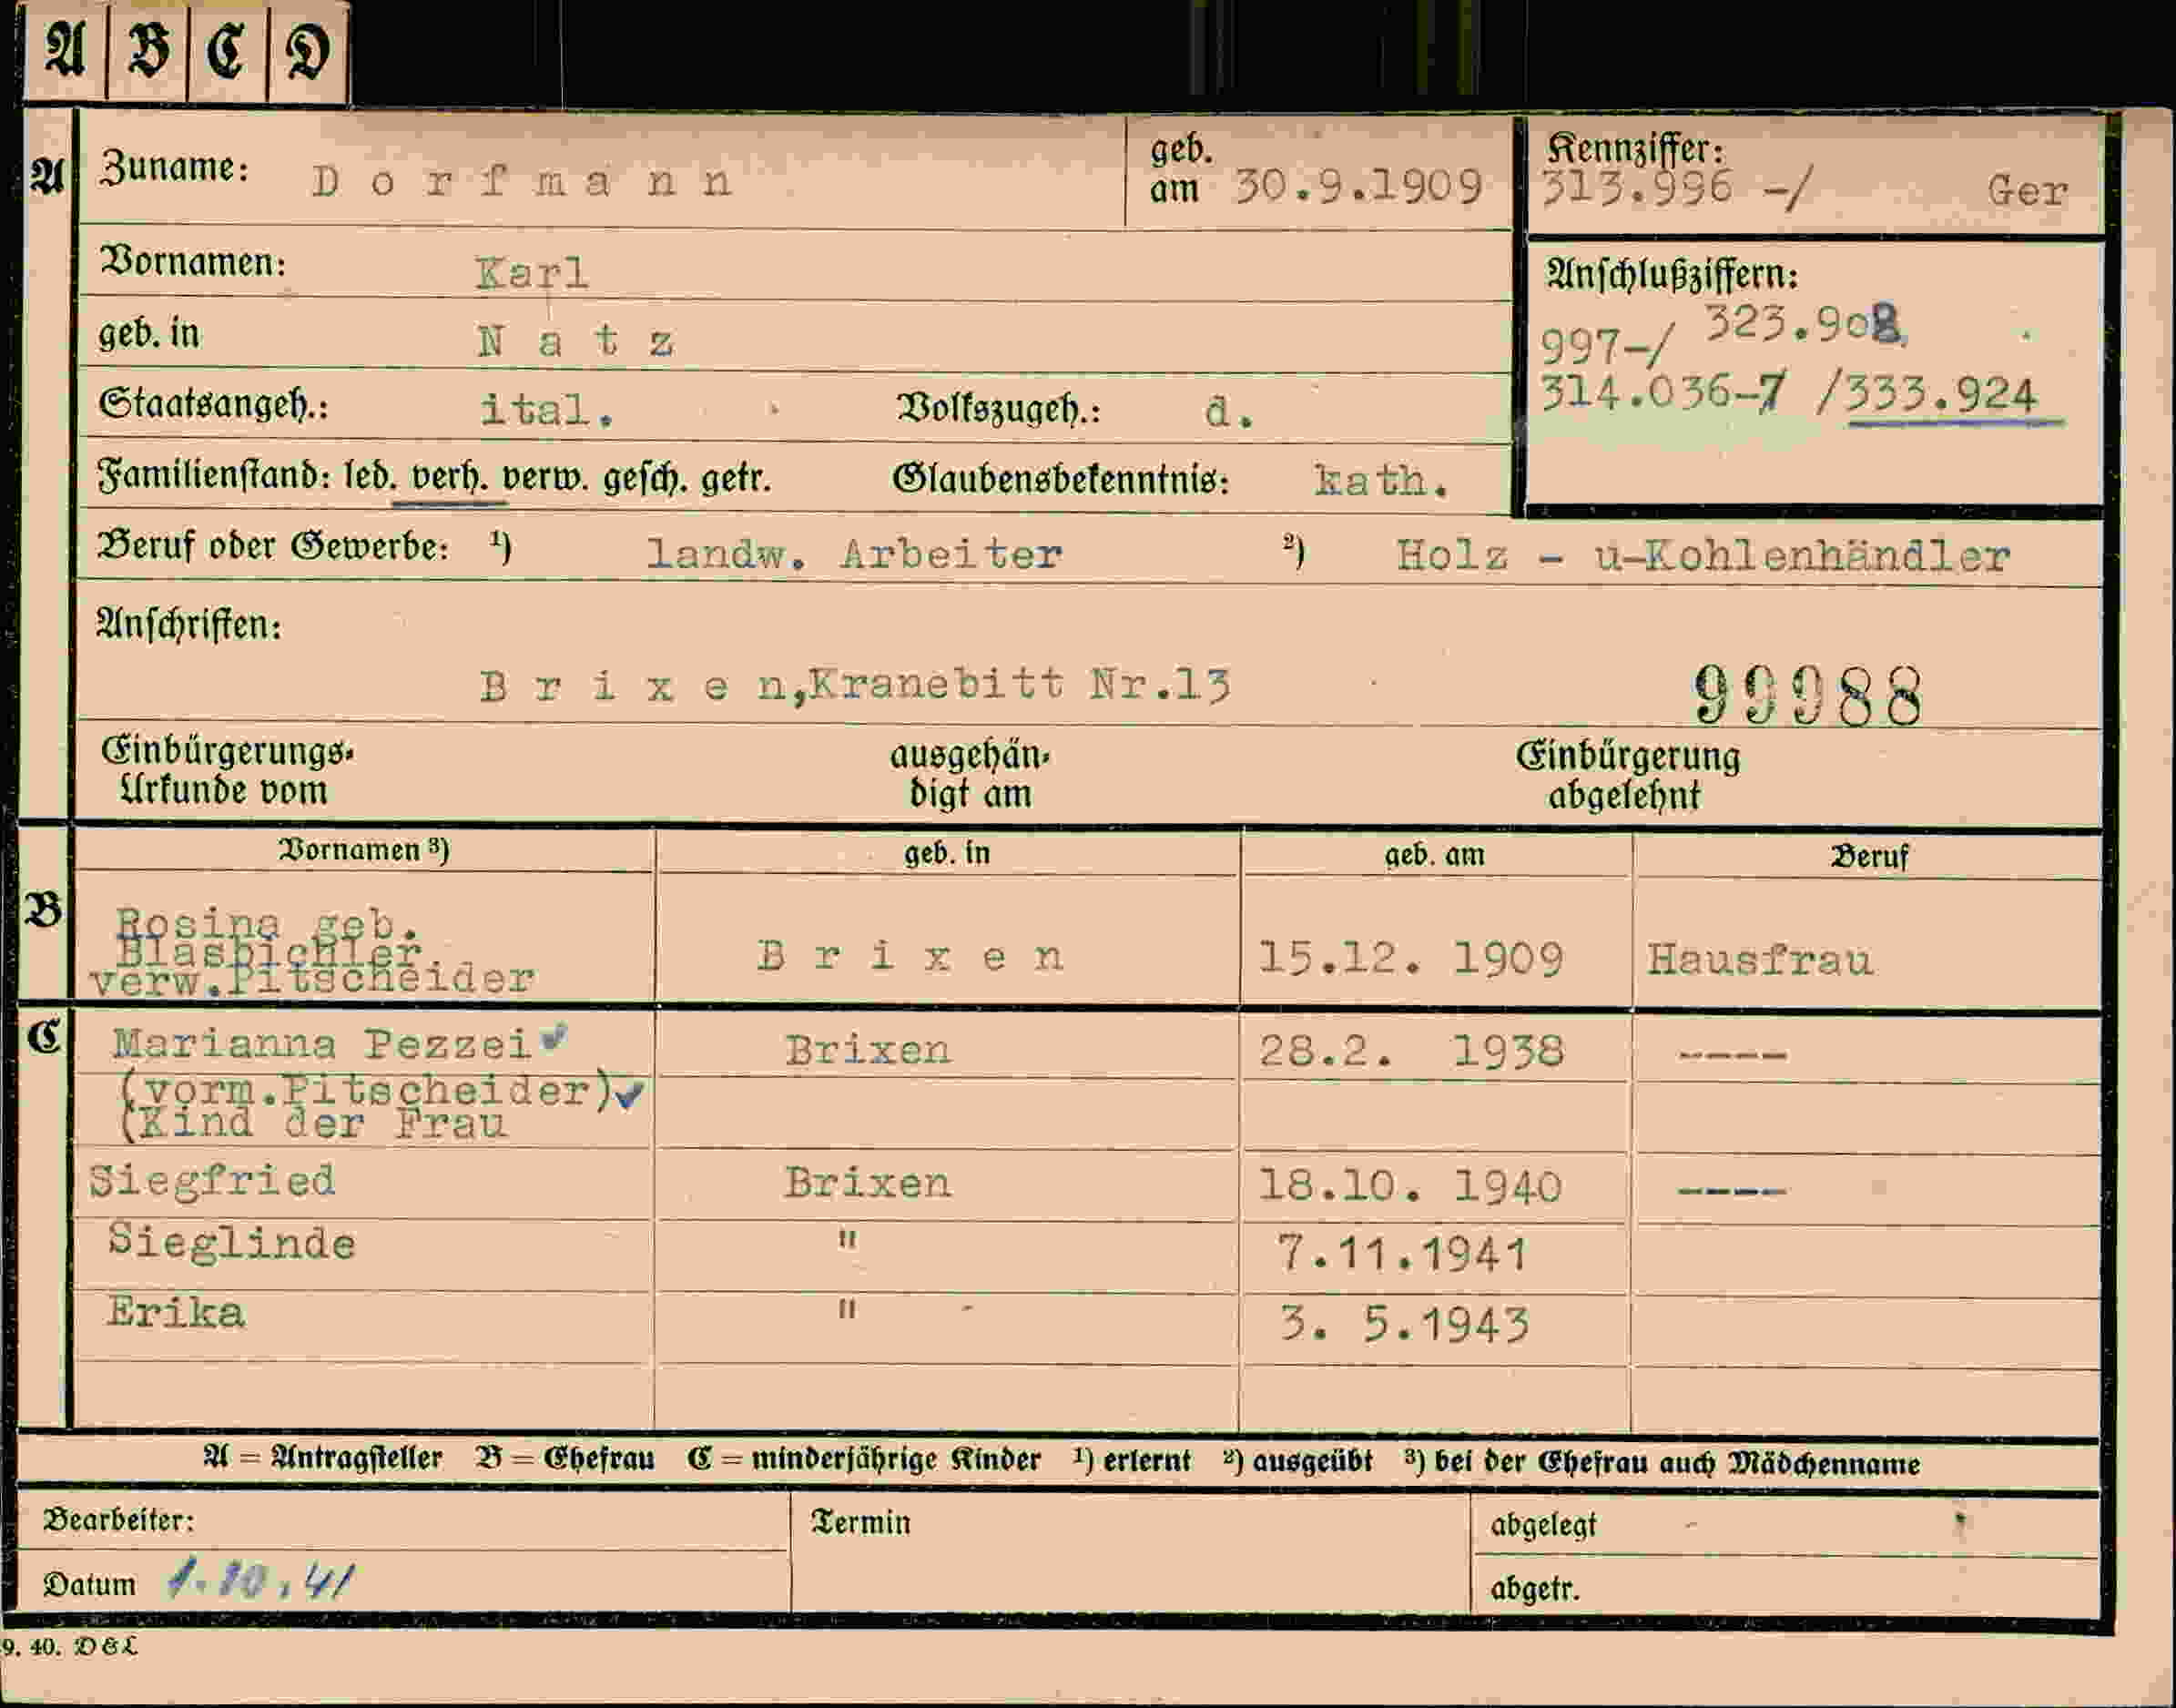 A B C D
A Zuname: Dorfmann geb. am 30.9.1909 Kennziffer: 313.996 -/ Ger
Vornamen: Karl
geb. in Natz
Anschlußziffern:
997-/ 323.908
314.036-7 /333.924
Staatsangeh.: ital. Volkszugeh.: d.
Familienstand: led. verh. verw. gesch. getr. Glaubensbekenntnis: kath.
Beruf oder Gewerbe: ¹) landw. Arbeiter ²) Holz - u-Kohlenhändler
Anschriften:
Brixen,Kranebitt Nr.13 99988
Einbürgerungs- ausgehän- Einbürgerung
Urkunde vom digt am abgelehnt
Vornamen ³) geb. in geb. am Beruf
B Rosina geb.
Blasbichler
verw.Pitscheider Brixen 15.12. 1909 Hausfrau
C Marianna Pezzei Brixen 28.2. 1938 ----
(vorm.Pitscheider)
(Kind der Frau
Siegfried Brixen 18.10. 1940 ----
Sieglinde " 7.11.1941
Erika " 3. 5.1943
A = Antragsteller B = Ehefrau C = minderjährige Kinder ¹) erlernt ²) ausgeübt ³) bei der Ehefrau auch Mädchenname
Bearbeiter: Termin abgelegt
Datum 1.10.41 abgetr.
9. 40. D&L